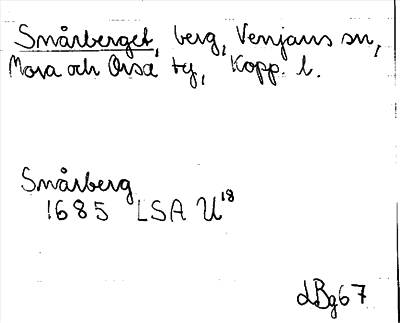 Snårberget, berg, Venjans sn,
Mora och Orsa tg, Kopp. l.
Snårberg
1685 LSA U18
LBg67